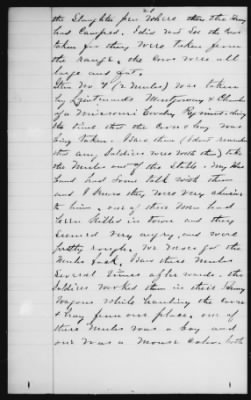 21
the Slaughter pen where the Army
had Camped. I did not See the Cows
taken for they were taken from
the range. the Cows were all
large and fat.
Item No 4 (2 Mules) was taken
by Lieutenants Montgomery &
of a Missouri Cavalry Regiment. during
the time that the Corn & hay was
being taken. I saw them (I dont remember
that any Soldiers were with them) take
the Mules out of the Stable. My Hus-
band had Some talk with them
and I know they were very abusive
to him, one of their Men had
been Killed in town and they
seemed very angry, and were
pretty rough. We Never got the
Mules back. I saw these Mules
Several times afterwards. the
Soldiers worked them in their Army
Wagons while hauling the Corn
& hay from our place. one of
these Mules was a bay and
one was a Mouse Color. both